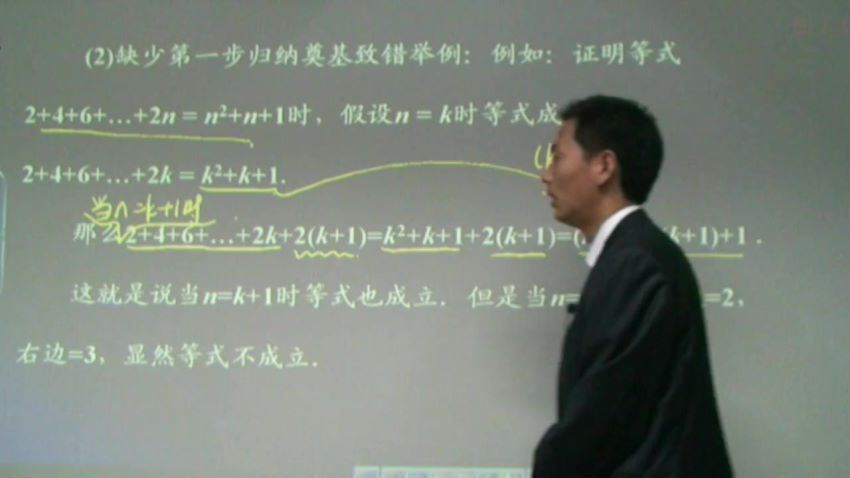 (2)缺少第一步归纳奠基致错举例：例如：证明等式
2+4+6+…+2n = n²+n+1时，假设n = k时等式成
2+4+6+…+2k = k²+k+1.
(k
当n=k+1时
那么2+4+6+…+2k+2(k+1)=k²+k+1+2(k+1)=( k+1)+1 .
这就是说当n=k+1时等式也成立. 但是当n= =2,
右边=3，显然等式不成立.